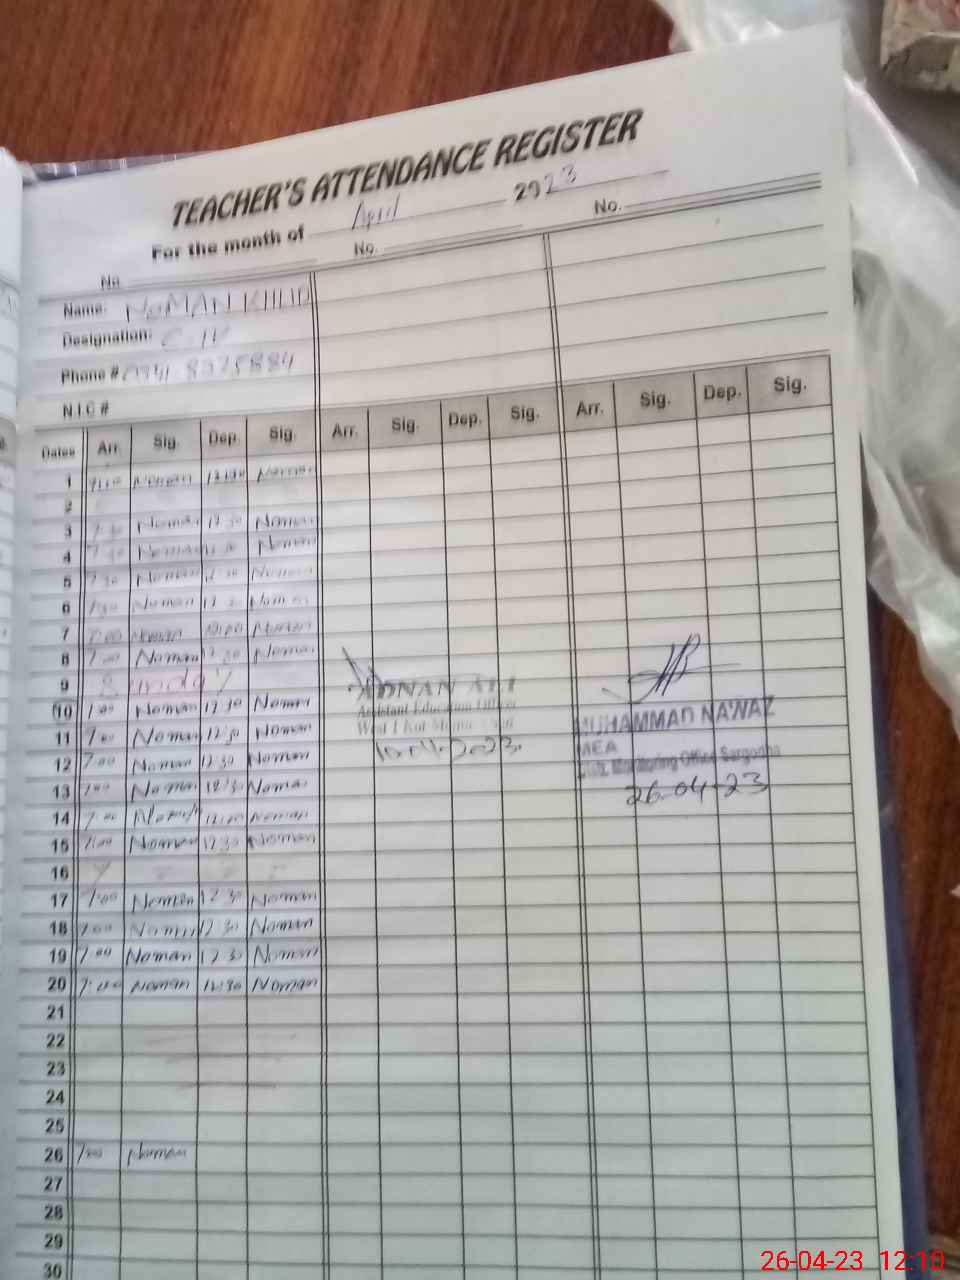 TEACHER'S ATTENDANCE REGISTER
For the month of April 2023
No. No. No.
Name: NOMAN
Designation: C-IV
Phone #
N I C #
Dates Arr. Sig. Dep. Sig. Arr. Sig. Dep. Sig. Arr. Sig. Dep. Sig.
1 Noman Noman
2
3 7 30 Noman 12 30 Noman
4 7 30 Noman 12 30 Noman
5 7 30 Noman 12 30 Noman
6 7 30 Noman 12 30 Noman
7 7 00 Noman Noman
8 7 00 Noman 12 30 Noman
9 Sunday
10 7 00 Noman 12 30 Noman
11 7 00 Noman 12 30 Noman
12 7 00 Noman 12 30 Noman
13 7 00 Noman 12 30 Noman
14 7 00 Noman Noman
15 7:00 Noman 12 30 Noman
16
17 7:00 Noman 12 30 Noman
18 7 00 Noman 12 30 Noman
19 7 00 Noman 12 30 Noman
20 7:00 Noman 12:30 Noman
21
22
23
24
25
26 7:00 Noman
27
28
29
30
ADNAN ALI
Assistant Education Officer
10-04-2023
MUHAMMAD NAWAZ
MEA
Distt. Monitoring Office Sargodha
26-04-23
26-04-23 12:10